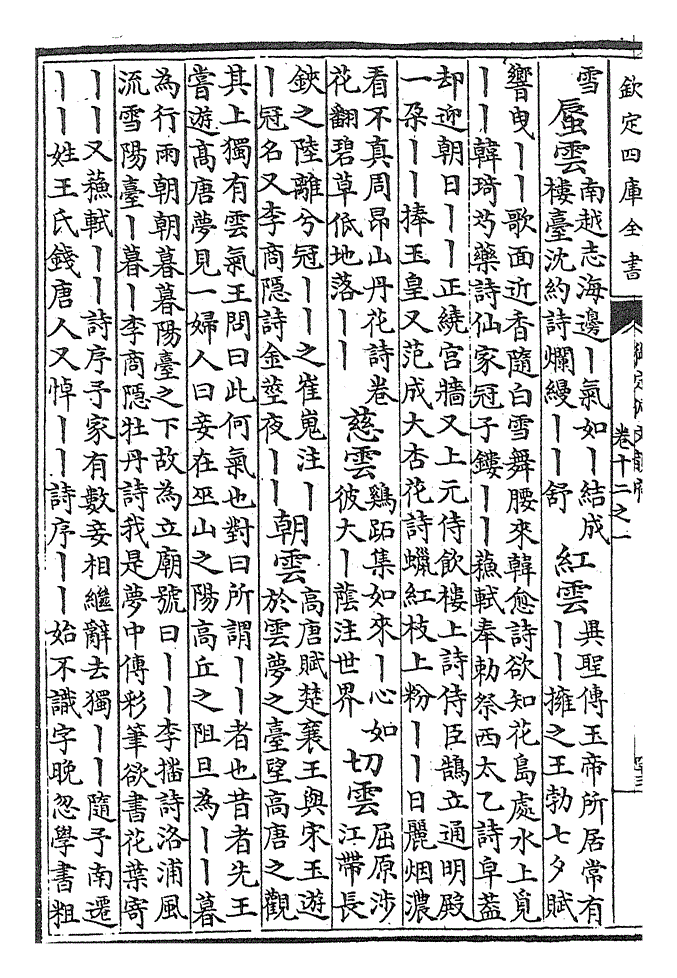 欽定四庫全書
卷十二之一
雪
蜃雲
南越志海邊丨氣如丨結成
樓臺沈約詩爛縵丨丨舒
紅雲
異聖傳玉帝所居常有
丨丨擁之王勃七夕賦
響曳丨丨歌面近香隨白雪舞腰來韓愈詩欲知花島處水上覓
丨丨韓琦芍藥詩仙家冠子鏤丨丨蘓軾奉勅祭西太乙詩皁葢
却迎朝日丨丨正繞宫牆又上元侍飲樓上詩侍臣鵠立通明殿
一朶丨丨捧玉皇又范成大杏花詩蠟紅枝上粉丨丨日麗烟濃
看不真周昂山丹花詩卷
花翻碧草低地落丨丨
慈雲
雞跖集如來丨心如
彼大丨蔭注世界
切雲
屈原涉
江帶長
鋏之陸離兮冠丨丨之崔嵬注丨
丨冠名又李商隱詩金莖夜丨丨
朝雲
高唐賦楚襄王與宋玉遊
於雲夢之臺望高唐之觀
其上獨有雲氣王問曰此何氣也對曰所謂丨丨者也昔者先王
嘗遊高唐夢見一婦人曰妾在巫山之陽高丘之阻旦為丨丨暮
為行雨朝朝暮暮陽臺之下故為立廟號曰丨丨李詩洛浦風
流雪陽臺丨暮丨李商隱牡丹詩我是夢中傳彩筆欲書花葉寄
丨丨又蘓軾丨丨詩序予家有數妾相繼辭去獨丨丨隨予南遷
丨丨姓王氏錢唐人又悼丨丨詩序丨丨始不識字晚忽學書粗